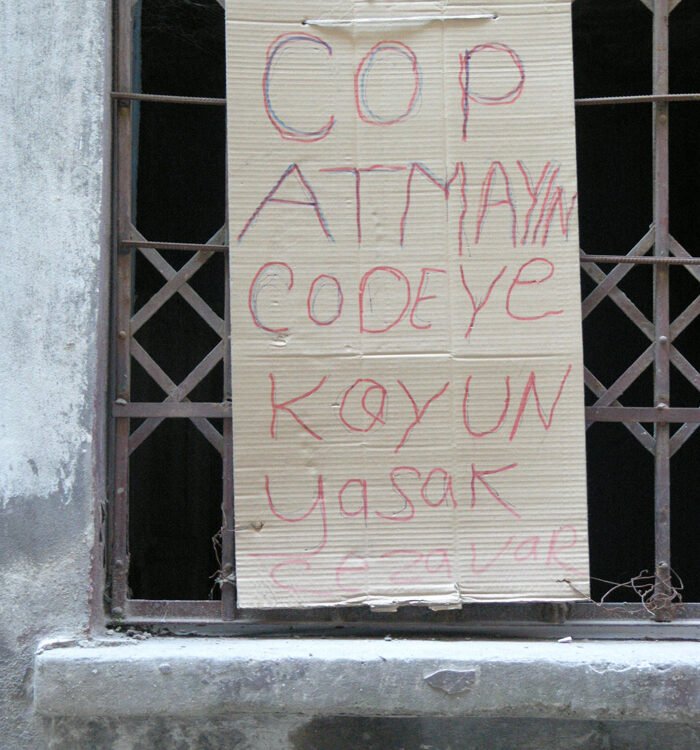 COP
ATMAYIN
CODEYe
KayUN
yasak
Ceza vaR